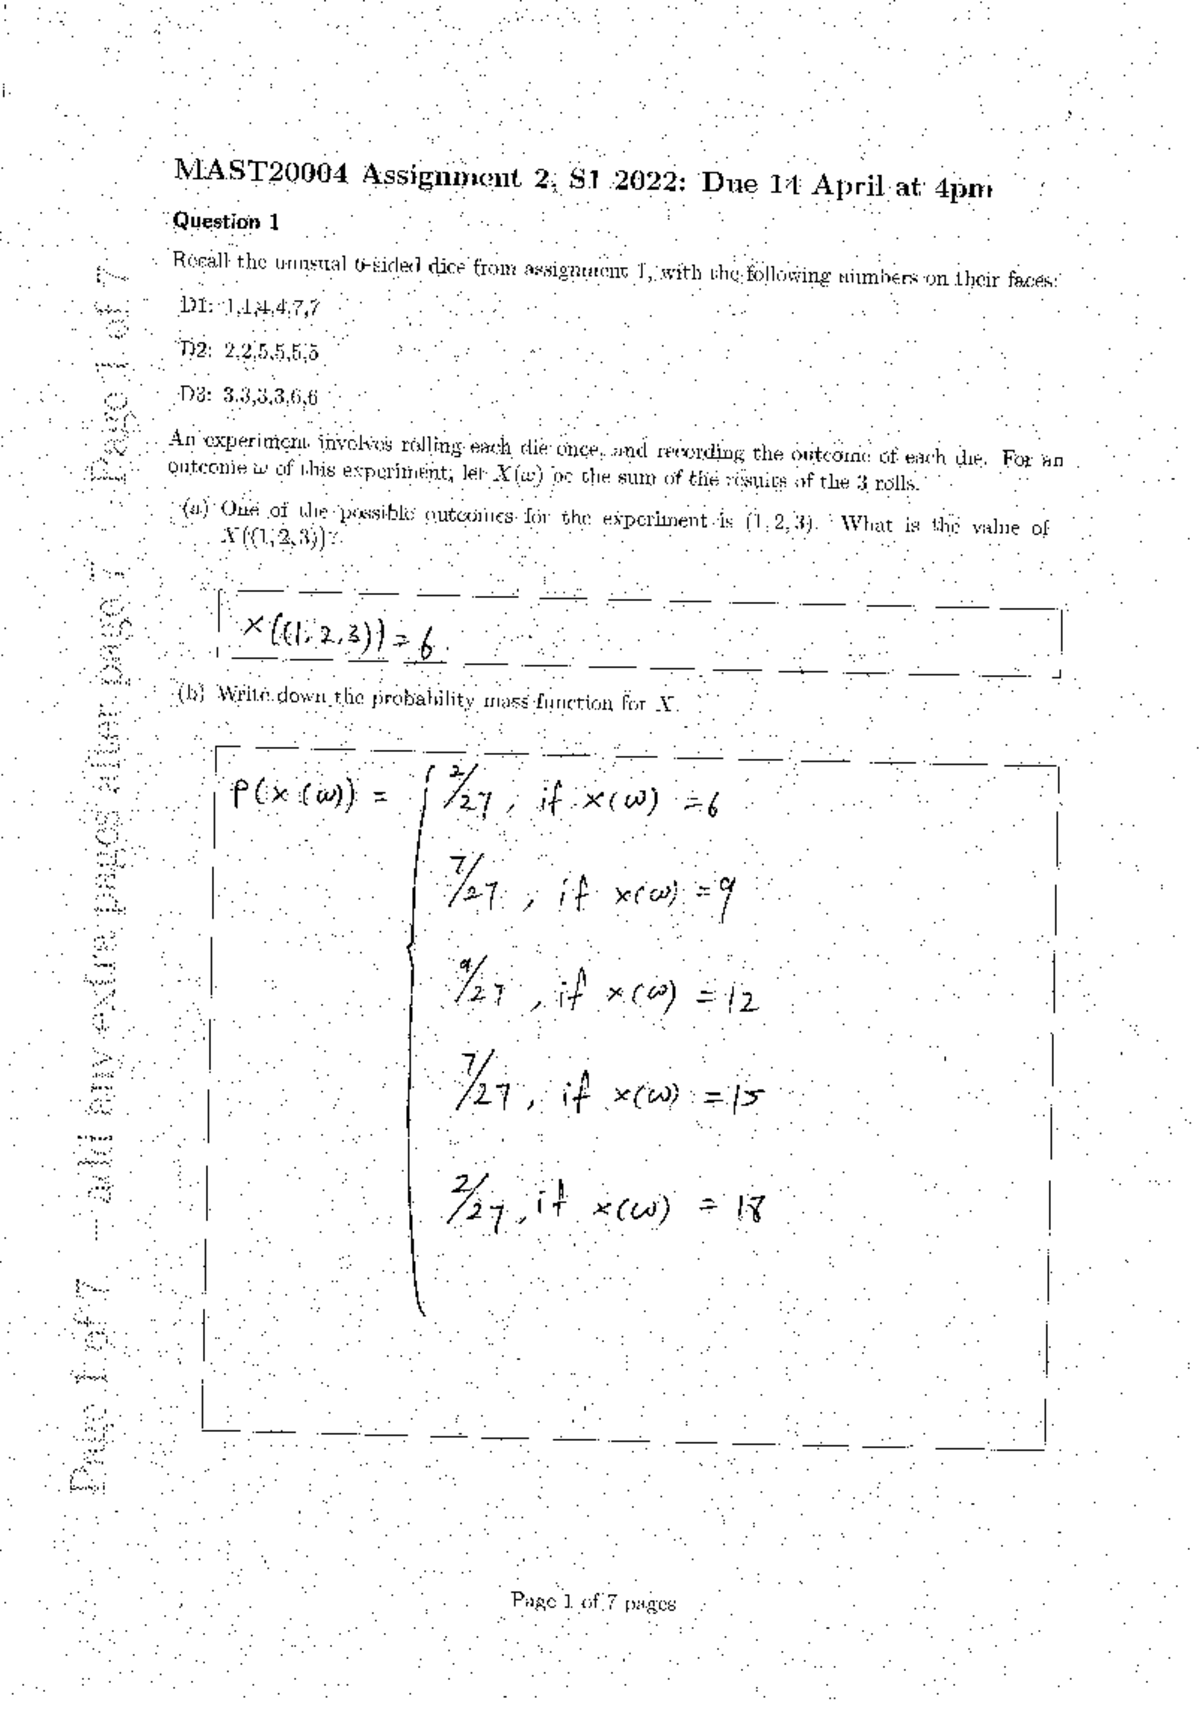 MAST20004 Assignment 2, S1 2022: Due 14 April at 4pm
Question 1
Recall the unusual 6-sided dice from assignment 1, with the following numbers on their faces:
D1: 1,1,4,4,7,7
D2: 2,2,5,5,5,5
D3: 3,3,3,3,6,6
An experiment involves rolling each die once, and recording the outcome of each die. For an
outcome ω of this experiment, let X(ω) be the sum of the results of the 3 rolls.
(a) One of the possible outcomes for the experiment is (1, 2, 3). What is the value of
X((1, 2, 3))?
X((1, 2, 3)) = 6
(b) Write down the probability mass function for X.
P(X(ω)) = { 2/27, if x(ω) = 6
7/27, if x(ω) = 9
9/27, if x(ω) = 12
7/27, if x(ω) = 15
2/27, if x(ω) = 18
Page 1 of 7 pages
Page 1 of 7 — add any extra pages after page 7 — Page 1 of 7